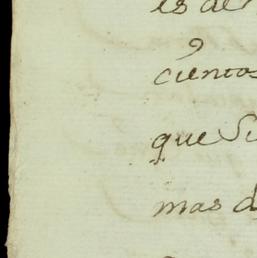 es de
cientos
que Si
mas d